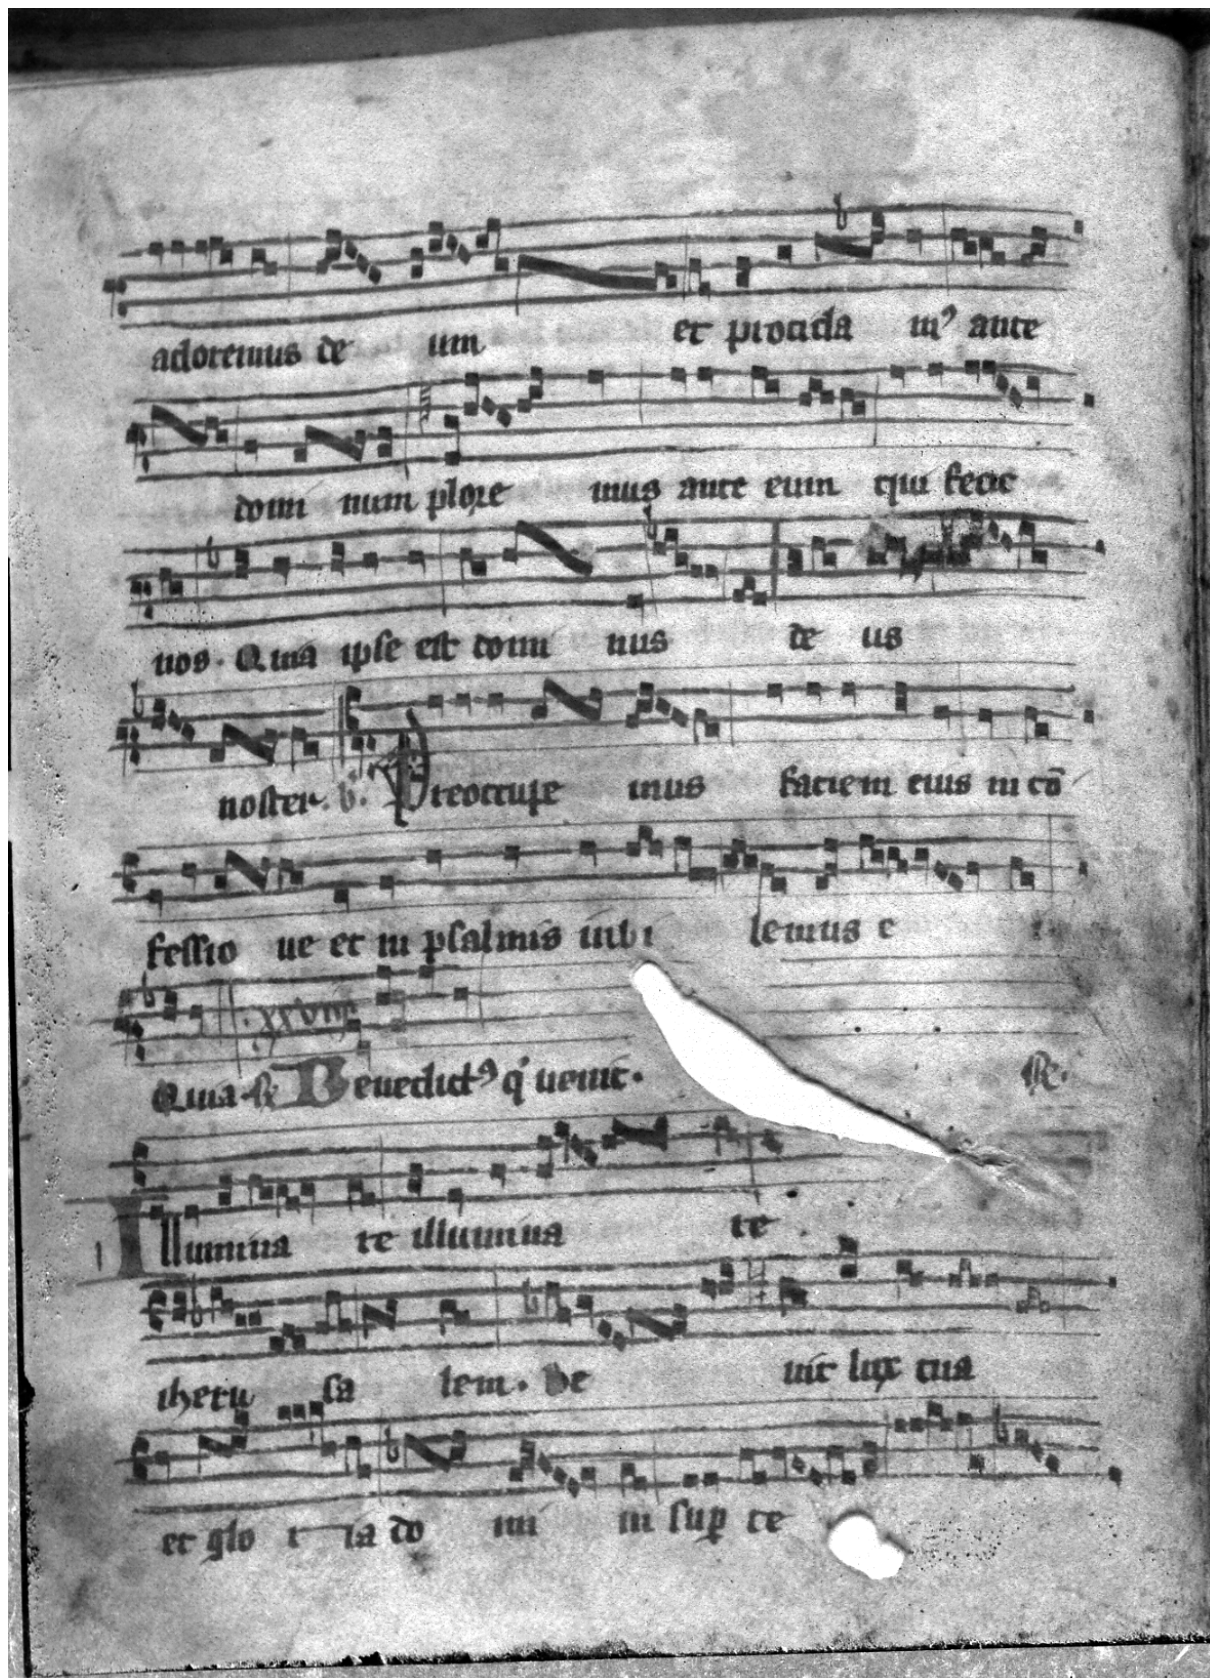 adoremus de um et procida m⁹ ante
domi num plore mus ante eum qui fecit
nos. Quia ipse est domi nus de us
noster. v. Preoccupe mus faciem eius in cō
fessio ne et in psalmis iubi lemus e i.
xxviij
Quia. R Benedict⁹ q' uenit. R.
Illumina re illumina re
iheru sa lem. Ve nit lux tua
et glo r ia do mi ni sup te